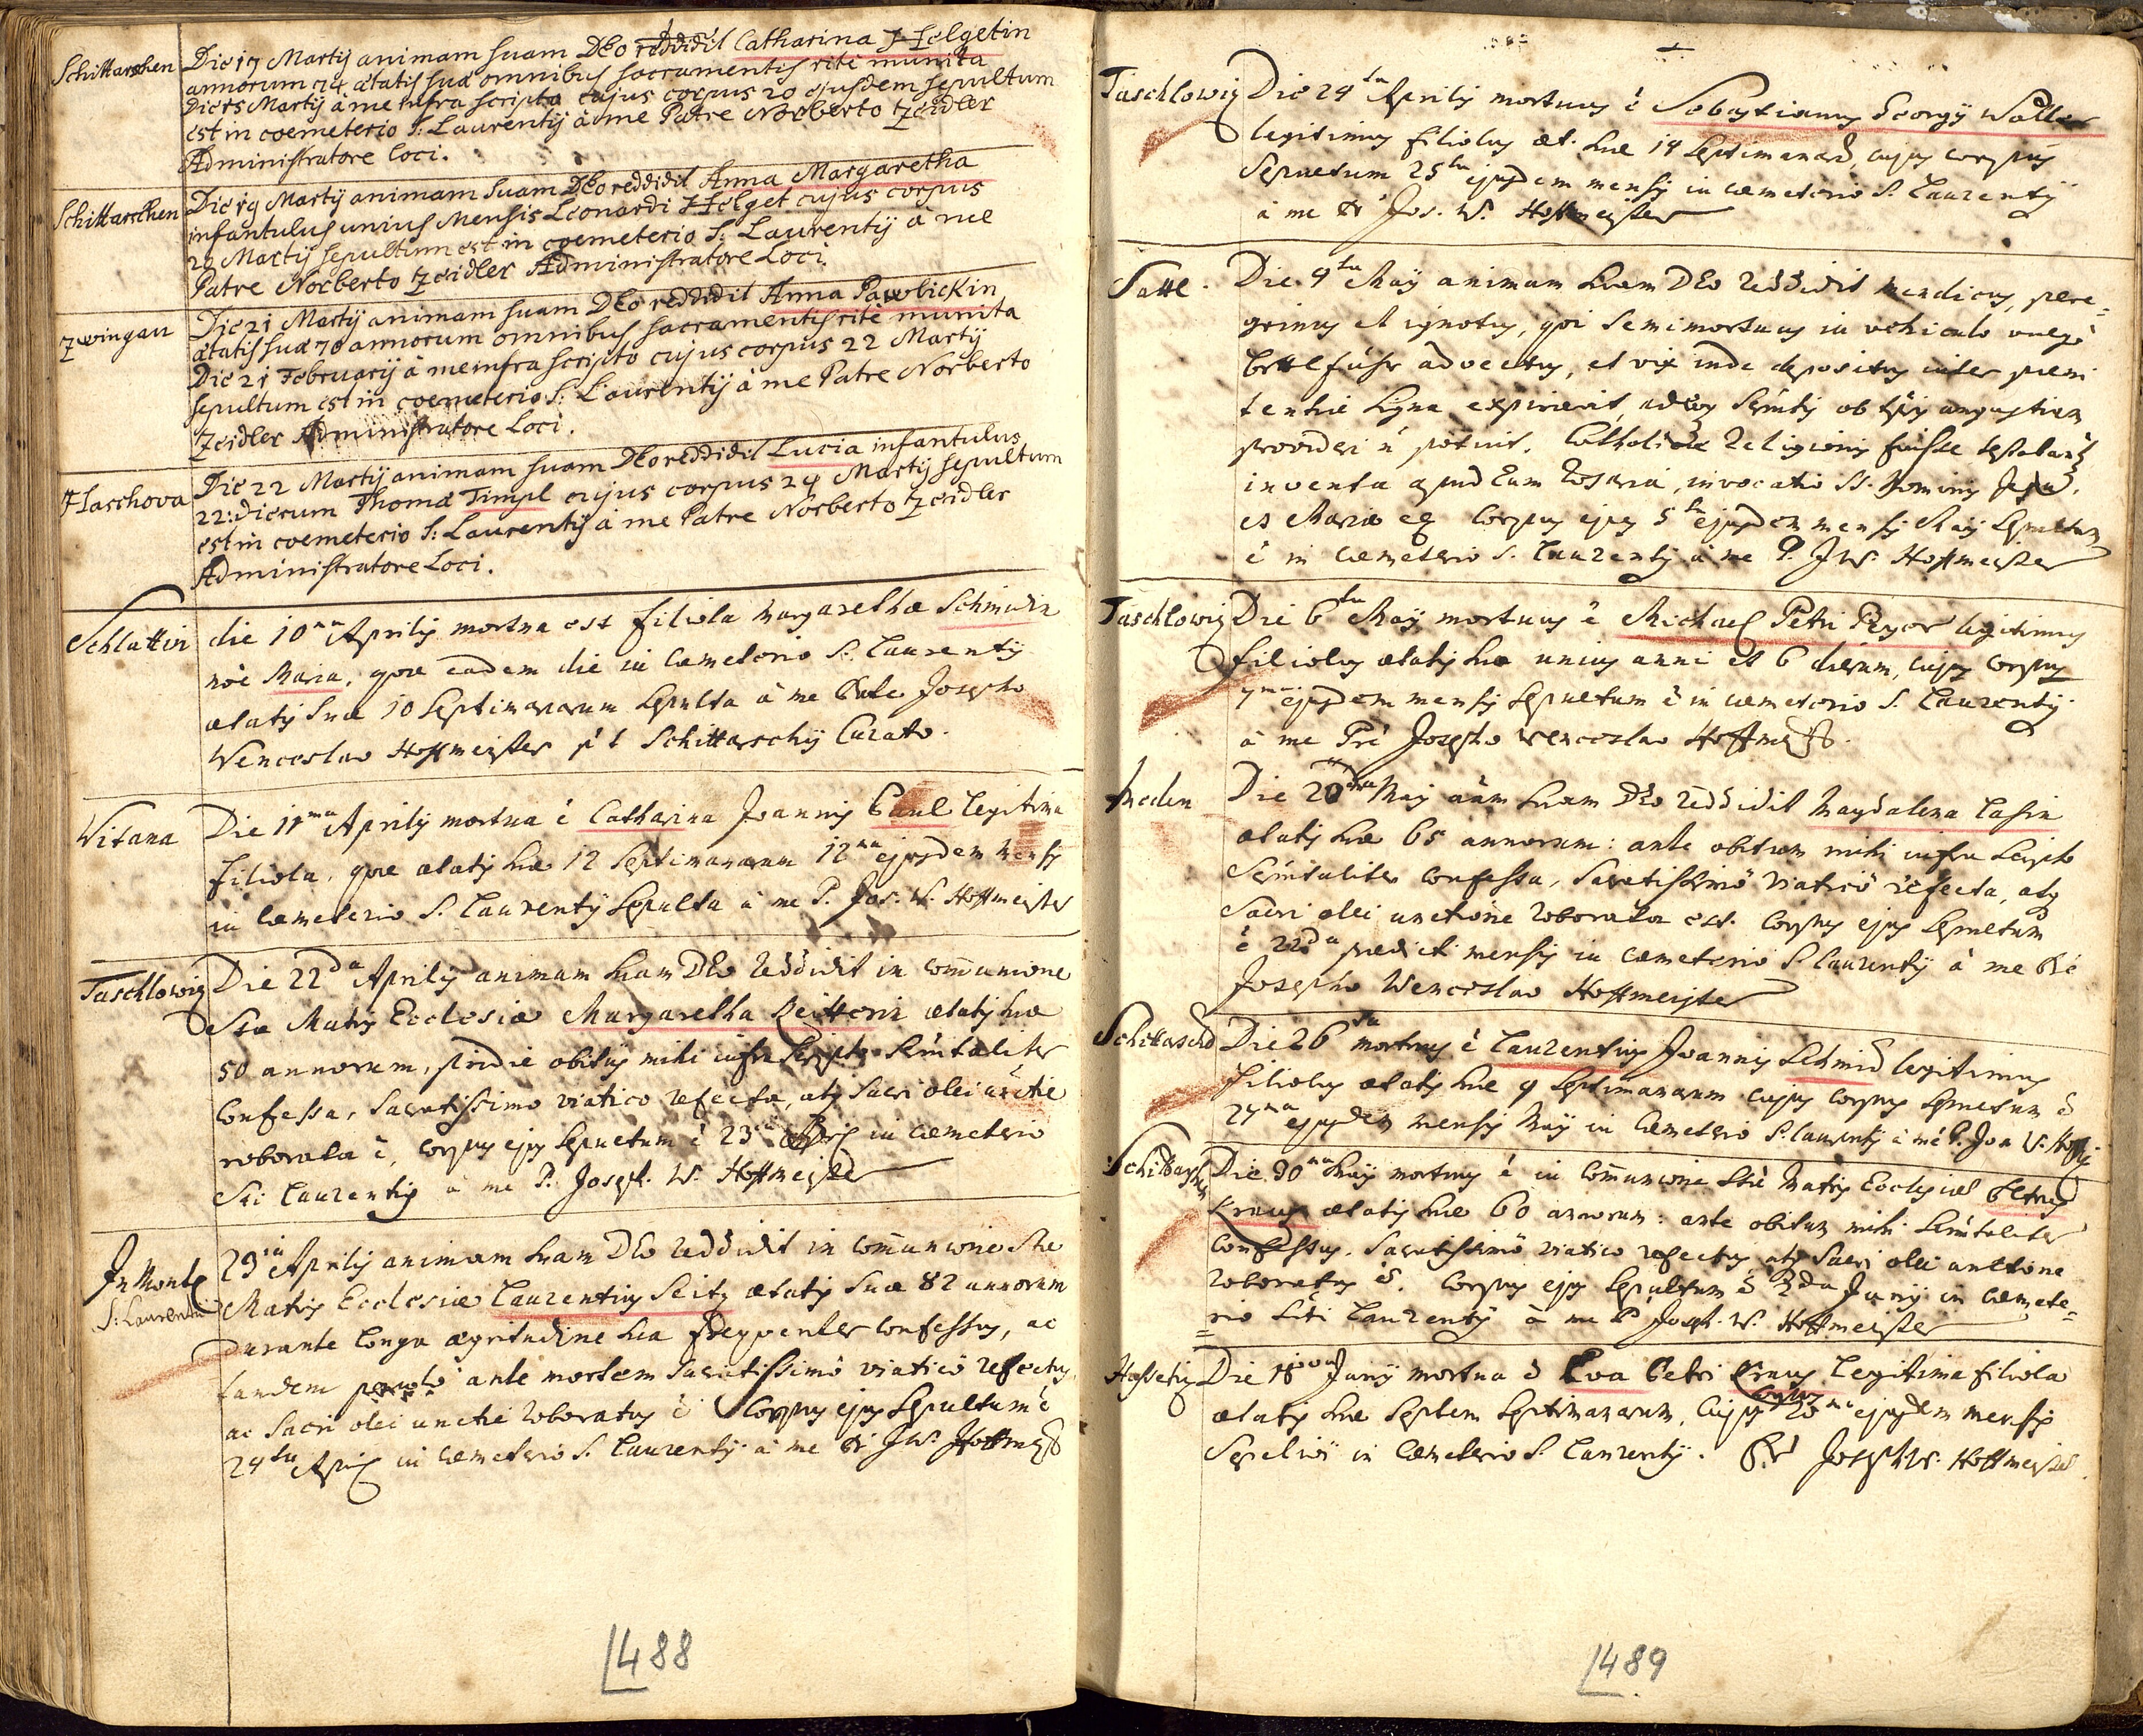 Schittarschen Die 17 Martij animam suam Deo reddidit Catharina Helgetin
annorum 74 ætatis suæ omnibus sacramentis rité munita
Die 15 Martij à me infra scripto cujus corpus 20 ejusdem sepultum
est in coemeterio S: Laurentij à me Patre Norberto Zeidler
Administratore loci.
Schittarschen Die 19 Martij animam suam Deo reddidit Anna Margaretha
infantulus unius Mensis Leonardi Helget cujus corpus
22 Martij sepultum est in coemeterio S: Laurentij a me
Patre Norberto Zeidler Administratore Loci.
Zwingau Die 21 Martij animam suam Deo reddidit Anna Pawlickin
ætatis suæ 70 annorum omnibus sacramentis rité munita
Die 21 Februarij à me infra scripto cujus corpus 22 Martij
sepultum est in coemeterio S: Laurentij à me Patre Norberto
Zeidler Administratore Loci.
Haschova Die 22 Martij animam suam Deo reddidit Lucia infantulus
22: dierum Thomæ Timpl cujus corpus 24 Martij sepultum
est in coemeterio S: Laurentij à me Patre Norberto Zeidler
Administratore Loci.
Schlattin die 10ma Aprilis mortua est filiola Margarethæ Schmidin
nõe Maria, quæ eadem die in Cæmeterio S. Laurentij
ætatis suæ 10 septimanarum sepulta à me Patre Josepho
Wenceslao Hoffmeister p.t. Schittarschij Curato.
Witana Die 11ma Aprilis mortua ẽ Catharina Joannis Paul legitima
filiola, quæ ætatis suæ 12 septimanarum 12ma ejusdem mensis
in Cæmeterio S. Laurentij sepulta à me P. Jos. W. Hoffmeister
Taschlowiz Die 22da Aprilis animam suam Deo reddidit in com̃unione
Stæ Matris Ecclesiæ Margaretha Reitterin ætatis suæ
50 annorum, pridie obitus mihi infra scripto sẽntaliter
Confessa, sacratissimo viatico refecta, atq sacri olei unctiẽ
roborata ẽ, corpus ejus sepultum ẽ 23 Apris in Cæmeterio
Sti Laurentij à me P. Joseph. W. Hoffmeister
In Monte S: Laurentii 23tia Aprilis animam suam Deo reddidit in com̃unione Stæ
Matris Ecclesiæ Laurentius Seitz ætatis suæ 82 annorum
Durante longa ægritudine sua frequenter confessus, ac
tandem paulo ante mortem sacratissimõ viaticõ refectus
ac sacri olei unctiẽ roboratus ẽ Corpus ejus sepultum ẽ
24ta Apris in Cæmeterio S. Laurentij à me Pr̃ JW. Hoffmeist
488
Taschlowiz Die 24ta Aprilis mortuus ẽ Sebastianus Georgij Waller
legitimus filiolus æt. suæ 14 septimanarũ, cujus corpus
sepultum 25ta ejusdem mensis in cæmeterio S. Laurentij
à me Pr̃ Jos. W. Hoffmeister
Satte. Die 4ta Maij animam suam Deo reddidit mendicus, pere=
grinus et ignotus, qui semimortuus in vehiculo vulgò
bettlfuhr advectus, et vix inde depositus inter pœni
tentiæ signa expiravit, ob temporis angustiam
provideri ñ potuit. Catholicæ Religionis fuisse testabant
inventa apud Eum Rosaria, invocatio SS. Nominis Jesu,
et Mariæ Corpus ejus 5ta ejusdem mensis Maij sepultum
ẽ in Cæmeterio S. Laurentij à me P. JW. Hoffmeister
Taschlowiz Die 6ta Maij mortuus ẽ Michael Petri Peyer legitimus
filiolus ætatis suæ unius anni et 6 dierum, cujus corpus
7ma ejusdem mensis sepultum ẽ in cæmeterio S. Laurentij
à me Prẽ Josepho Wenceslao Hoffmeist.
Meden Die 20ma Maij añam suam Deo reddidit Magdalena Lasin
ætatis suæ 65 annorum: ante obitum mihi infra scripto
sẽntaliter confessa, sacratissimõ viaticõ refecta, atq
sacri olei unctione roborata est. Corpus ejus sepultum
ẽ 22da prædicti mensis in cæmeterio S Laurentij à me Prẽ
Josepho Wenceslao Hoffmeister
Schittarsch Die 26ta mortuus ẽ Laurentius Joannis Schmid legitimus
filiolus ætatis suæ 9 septimanarum cujus corpus sepultum ẽ
27ma ejusdem mensis Maij in Cæmeterio S. Laurentij à me P. Jos W. Hoff
Schittarschen Die 30ma Maij mortuus ẽ in com̃unione Stæ Matris Ecclesiæ Petrus
Kraus ætatis suæ 60 annorum: ante obitum mihi sẽntaliter
Confessus, sacratissimõ viatico refectus, atq sacri olei unctione
roboratus ẽ. Corpus ejus sepultum ẽ 2da Junij in cæmete=
=rio Sti Laurentij à me P Joseph. W. Hoffmeister
Hassatiz Die 18va Junij mortua ẽ Eva Petri Kraus legitima filiola
ætatis suæ septem septimanarum, cujus corpus 20ma ejusdem mensis
sepelivi in Cæmeterio S. Laurentij. Pr̃ Joseph W. Hoffmeister.
489